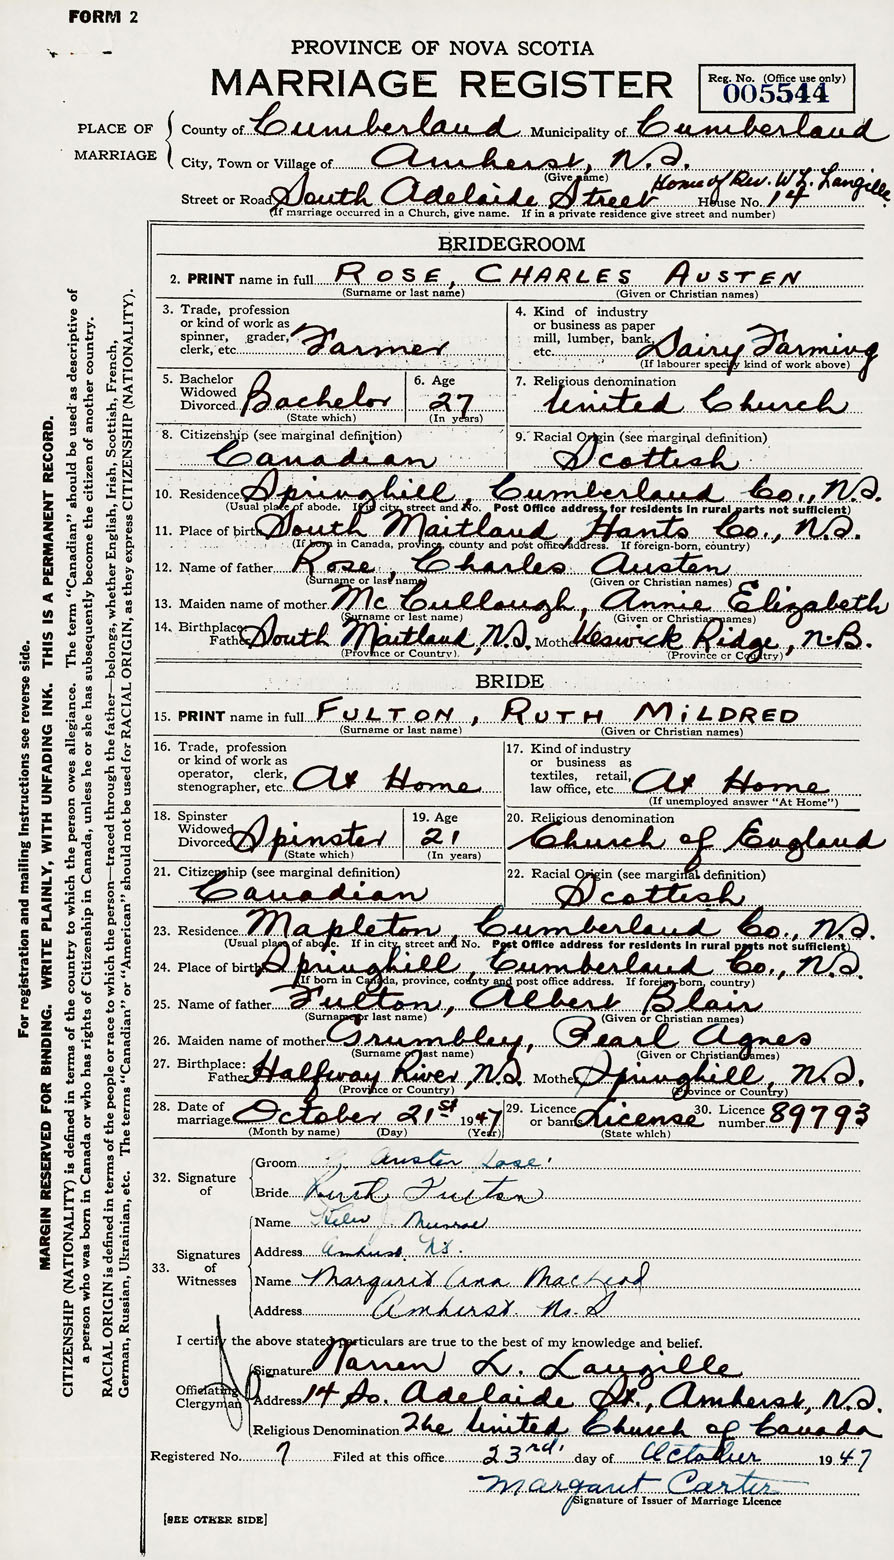 FORM 2
PROVINCE OF NOVA SCOTIA
MARRIAGE REGISTER
Reg. No. (Office use only)
005544
PLACE OF MARRIAGE
County of Cumberland Municipality of Cumberland
City, Town or Village of Amherst, N.S.
(Give name) Home of Rev. W.L. Langille
Street or Road South Adelaide Street House No. 14
(If marriage occurred in a Church, give name. If in a private residence give street and number)
BRIDEGROOM
2. PRINT name in full ROSE, CHARLES AUSTEN
(Surname or last name) (Given or Christian names)
3. Trade, profession or kind of work as spinner, grader, clerk, etc. Farmer
4. Kind of industry or business as paper mill, lumber, bank, etc. Dairy Farming
(If labourer specify kind of work above)
5. Bachelor Widowed Divorced Bachelor
(State which)
6. Age 27
(In years)
7. Religious denomination United Church
8. Citizenship (see marginal definition) Canadian
9. Racial Origin (see marginal definition) Scottish
10. Residence Springhill, Cumberland Co., N.S.
(Usual place of abode. If in city, street and No. Post Office address for residents in rural parts not sufficient)
11. Place of birth South Maitland, Hants Co., N.S.
(If born in Canada, province, county and post office address. If foreign-born, country)
12. Name of father Rose, Charles Austen
(Surname or last name) (Given or Christian names)
13. Maiden name of mother McCullough, Annie Elizabeth
(Surname or last name) (Given or Christian names)
14. Birthplace: Father South Maitland, N.S. Mother Keswick Ridge, N.B.
(Province or Country) (Province or Country)
BRIDE
15. PRINT name in full FULTON, RUTH MILDRED
(Surname or last name) (Given or Christian names)
16. Trade, profession or kind of work as operator, clerk, stenographer, etc. At Home
17. Kind of industry or business as textiles, retail, law office, etc. At Home
(If unemployed answer "At Home")
18. Spinster Widowed Divorced Spinster
(State which)
19. Age 21
(In years)
20. Religious denomination Church of England
21. Citizenship (see marginal definition) Canadian
22. Racial Origin (see marginal definition) Scottish
23. Residence Mapleton, Cumberland Co., N.S.
(Usual place of abode. If in city, street and No. Post Office address for residents in rural parts not sufficient)
24. Place of birth Springhill, Cumberland Co., N.S.
(If born in Canada, province, county and post office address. If foreign-born, country)
25. Name of father Fulton, Albert Blair
(Surname or last name) (Given or Christian names)
26. Maiden name of mother Grumbley, Pearl Agnes
(Surname or last name) (Given or Christian names)
27. Birthplace: Father Halfway River, N.S. Mother Springhill, N.S.
(Province or Country) (Province or Country)
28. Date of marriage October 21st 1947
(Month by name) (Day) (Year)
29. Licence or bann License
(State which)
30. Licence number 89793
32. Signature of
Groom Austen Rose
Bride Ruth Fulton
33. Signatures of Witnesses
Name Helen J. Munroe
Address Amherst NS.
Name Margaret Ann MacLeod
Address Amherst N.S
I certify the above stated particulars are true to the best of my knowledge and belief.
Officiating Clergyman
Signature Warren L. Langille
Address 14 So. Adelaide St., Amherst, N.S.
Religious Denomination The United Church of Canada
Registered No. 7 Filed at this office 23rd. day of October 1947
Margaret Carter
Signature of Issuer of Marriage Licence
[SEE OTHER SIDE]
For registration and mailing instructions see reverse side.
MARGIN RESERVED FOR BINDING. WRITE PLAINLY, WITH UNFADING INK. THIS IS A PERMANENT RECORD.
CITIZENSHIP (NATIONALITY) is defined in terms of the country to which the person owes allegiance. The term "Canadian" should be used as descriptive of
a person who was born in Canada or who has rights of Citizenship in Canada, unless he or she has subsequently become the citizen of another country.
RACIAL ORIGIN is defined in terms of the people or race to which the person—traced through the father—belongs, whether English, Irish, Scottish, French,
German, Russian, Ukrainian, etc. The terms "Canadian" or "American" should not be used for RACIAL ORIGIN, as they express CITIZENSHIP (NATIONALITY).